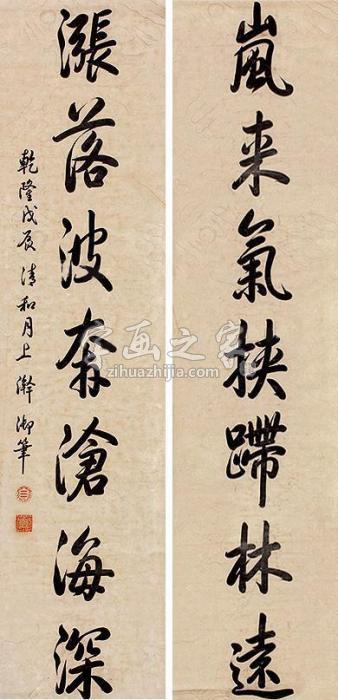 嵐来氣挾蹛林遠
漲落波奔滄海深
乾隆戊辰清和月上澣御筆
字画之家
zihuazhijia.com